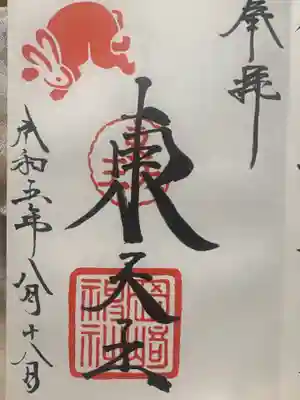 奉拝
東天王
岡崎
神社
令和五年 八月十八日